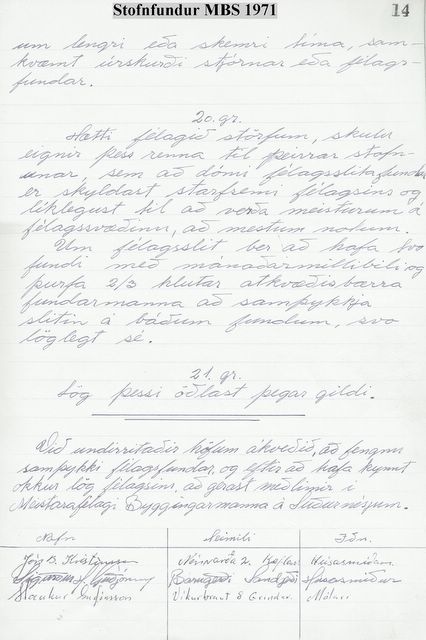 Stofnfundur MBS 1971
14
um lengri eða skemri tíma, sam-
kvæmt úrskurði stjórnar eða félags-
fundar.
20. gr.
Hætti félagið störfum, skulu
eignir þess renna til þeirrar stofn-
unar, sem að dómi félagsslitafundar
er skyldast starfsemi félagsins og
líklegust til að verða meisturum á
félagssvæðinu, að mestum notum.
Um félagsslit ber að hafa tvo
fundi með mánaðarmillibili og
þurfa 2/3 hlutar atkvæðisbærra
fundarmanna að samþykkja
slitin á báðum fundum, svo
löglegt sé.
21. gr.
Lög þessi öðlast þegar gildi.
Við undirritaðir höfum ákveðið, að fengnu
samþykki félagsfundar, og eftir að hafa kynnt
okkur lög félagsins, að gerast meðlimir í
Meistarafélagi Byggingarmanna á Suðurnesjum.
Nafn Heimili Iðn.
2. Keflav. Húsasmíðam.
Sandgerði Húsasmiður
Haukur Guðjónsson Víkurbraut 8 Grindav. Málari